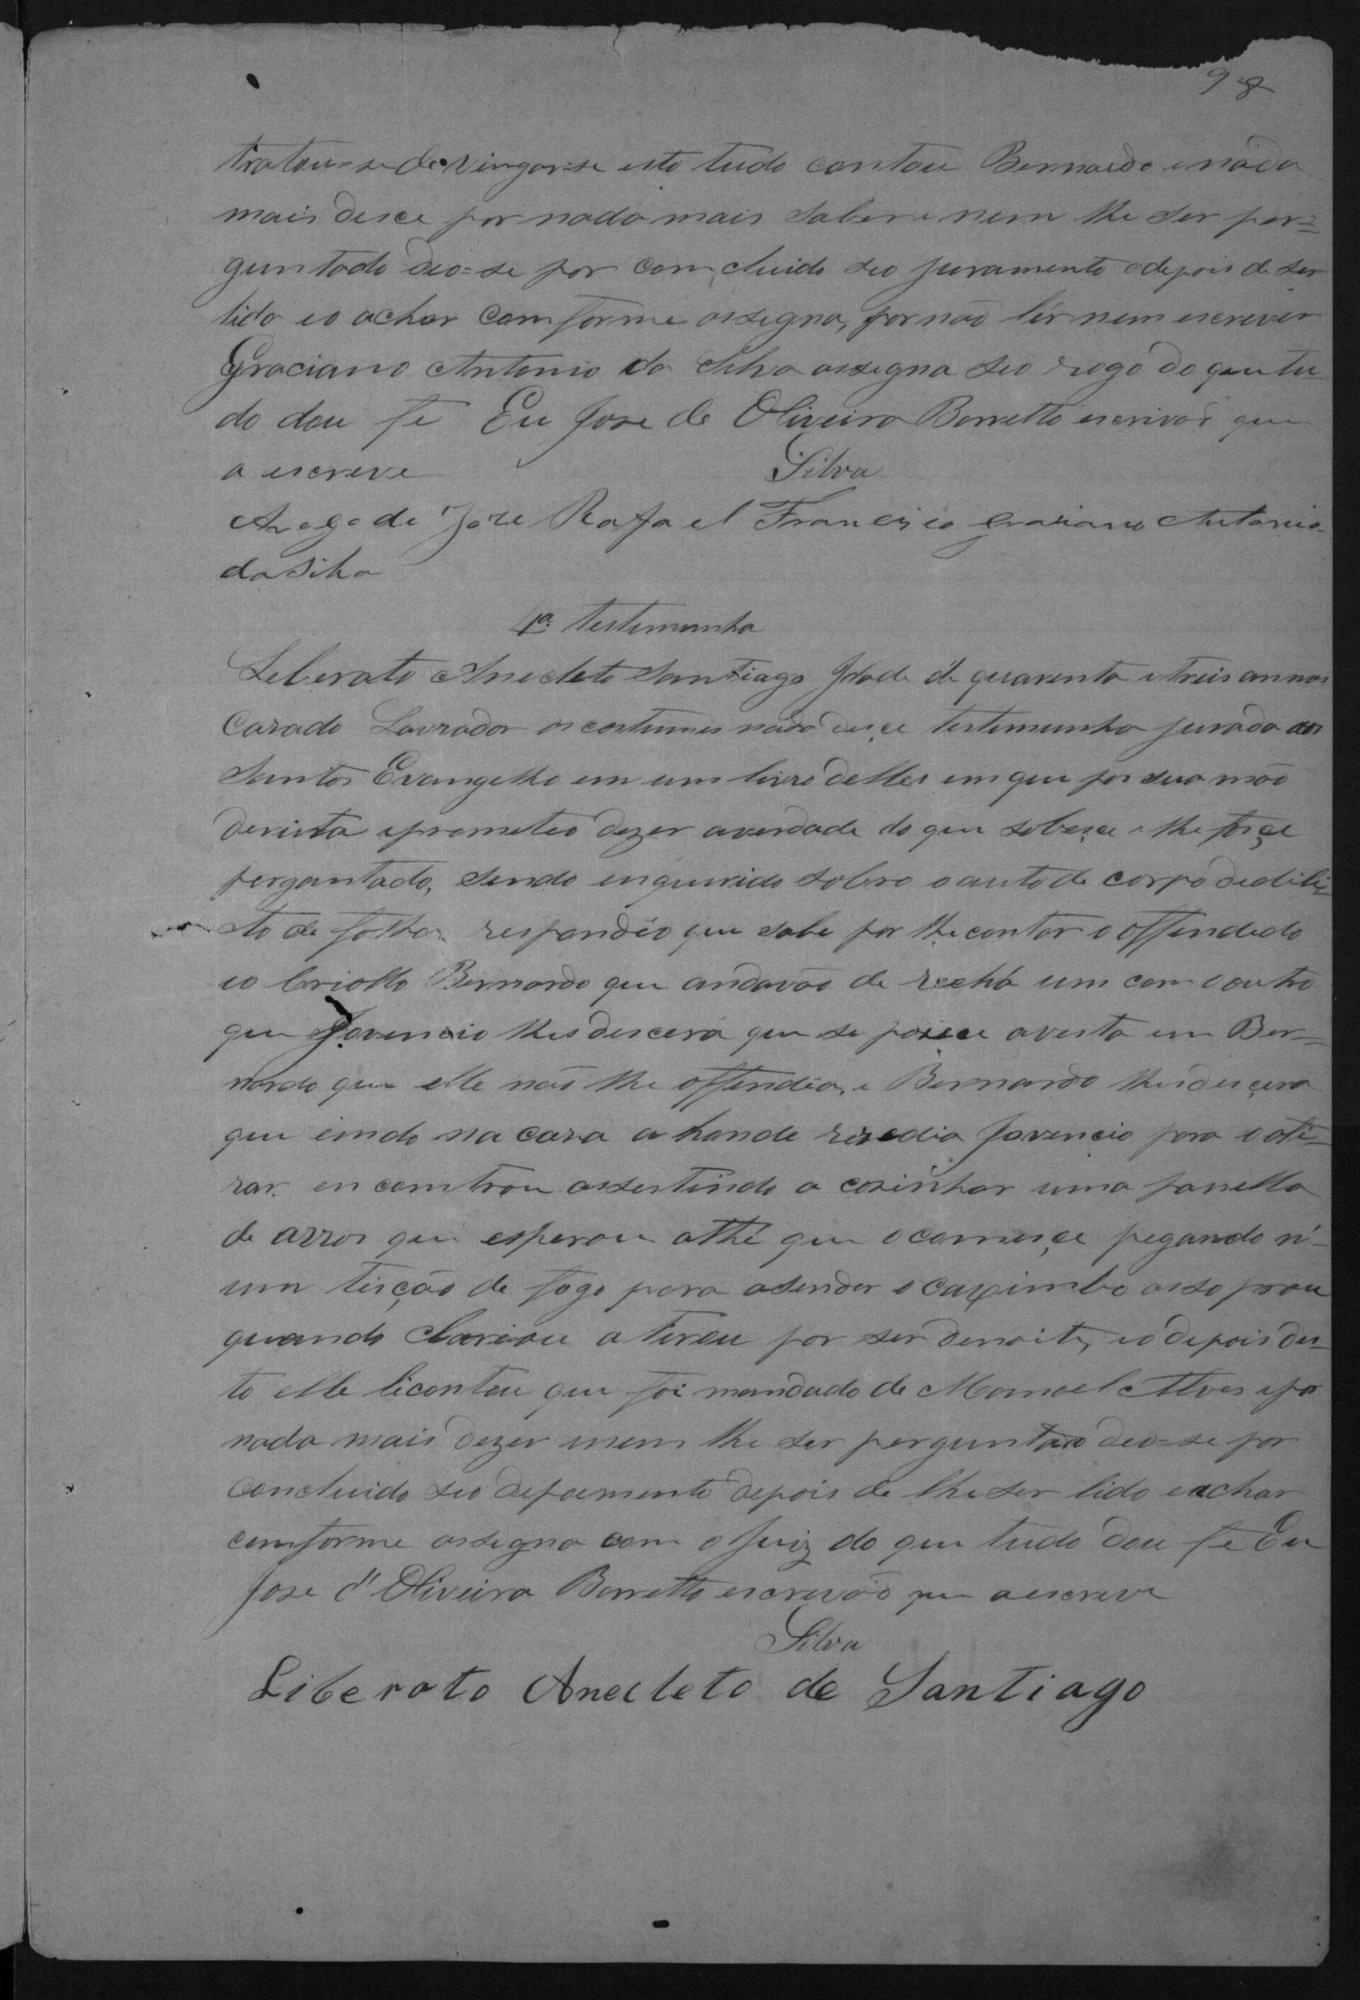 98
tratou-se de vingar-se isto tudo contou Bernardo e nada
mais disce por nada mais saber e nem lhe ser per=
guntado deo-se por comcluido seo juramento e depois de ser
lido e o achar comforme assegna, por não lêr nem escrever
Graciano Antonio da Silva assegna seo rogo do que tu
do dou fe Eu Jose de Oliveira Barretto escrivão que
a escreve
Silva
A rogo de Jose Rafael Francisco Graciano Antonio
da Silva
4ª testemunha
Leberato Anecleto Santiago Idade de quarenta e treis annos
Cazado Lavrador os costumes nada disce testemunha jurada aos
Santos Evangelho em um livro delles em que pos sua mão
dereita e prometeo dezer averdade do que sobesce e lhe fosce
perguntado, sendo enquerido sobre o auto de corpo dedili-
to de folha respondêo que sabe por lhe contar o offendido
e o Criollo Bernardo que andavão de recha um com o outro
que Jovencio lhes descera que se posece a vesta em Ber=
nardo que elle não lhe offendia, e Bernardo lhes desçera
que endo na caza a honde rezedia Jovencio para o ati-
rar encomtrou assestindo a cozinhar uma panella
de arros que esperou athé que o comesçe pegando n'
um tisção de fogo para asender o caximbo assoprou
quando clariou atirou por ser denoite, e o depois des-
to elle li contou que foi mandado de Manoel Alves e por
nada mais dezer e nem lhe ser perguntado deo-se por
concluido seo depoemento depois de lhe ser lido e achar
comforme assegna com o Juiz do que tudo dou fe Eu
Jose d'Oliveira Barretto escrevão que a escreve
Silva
Liberato Anecleto de Santiago